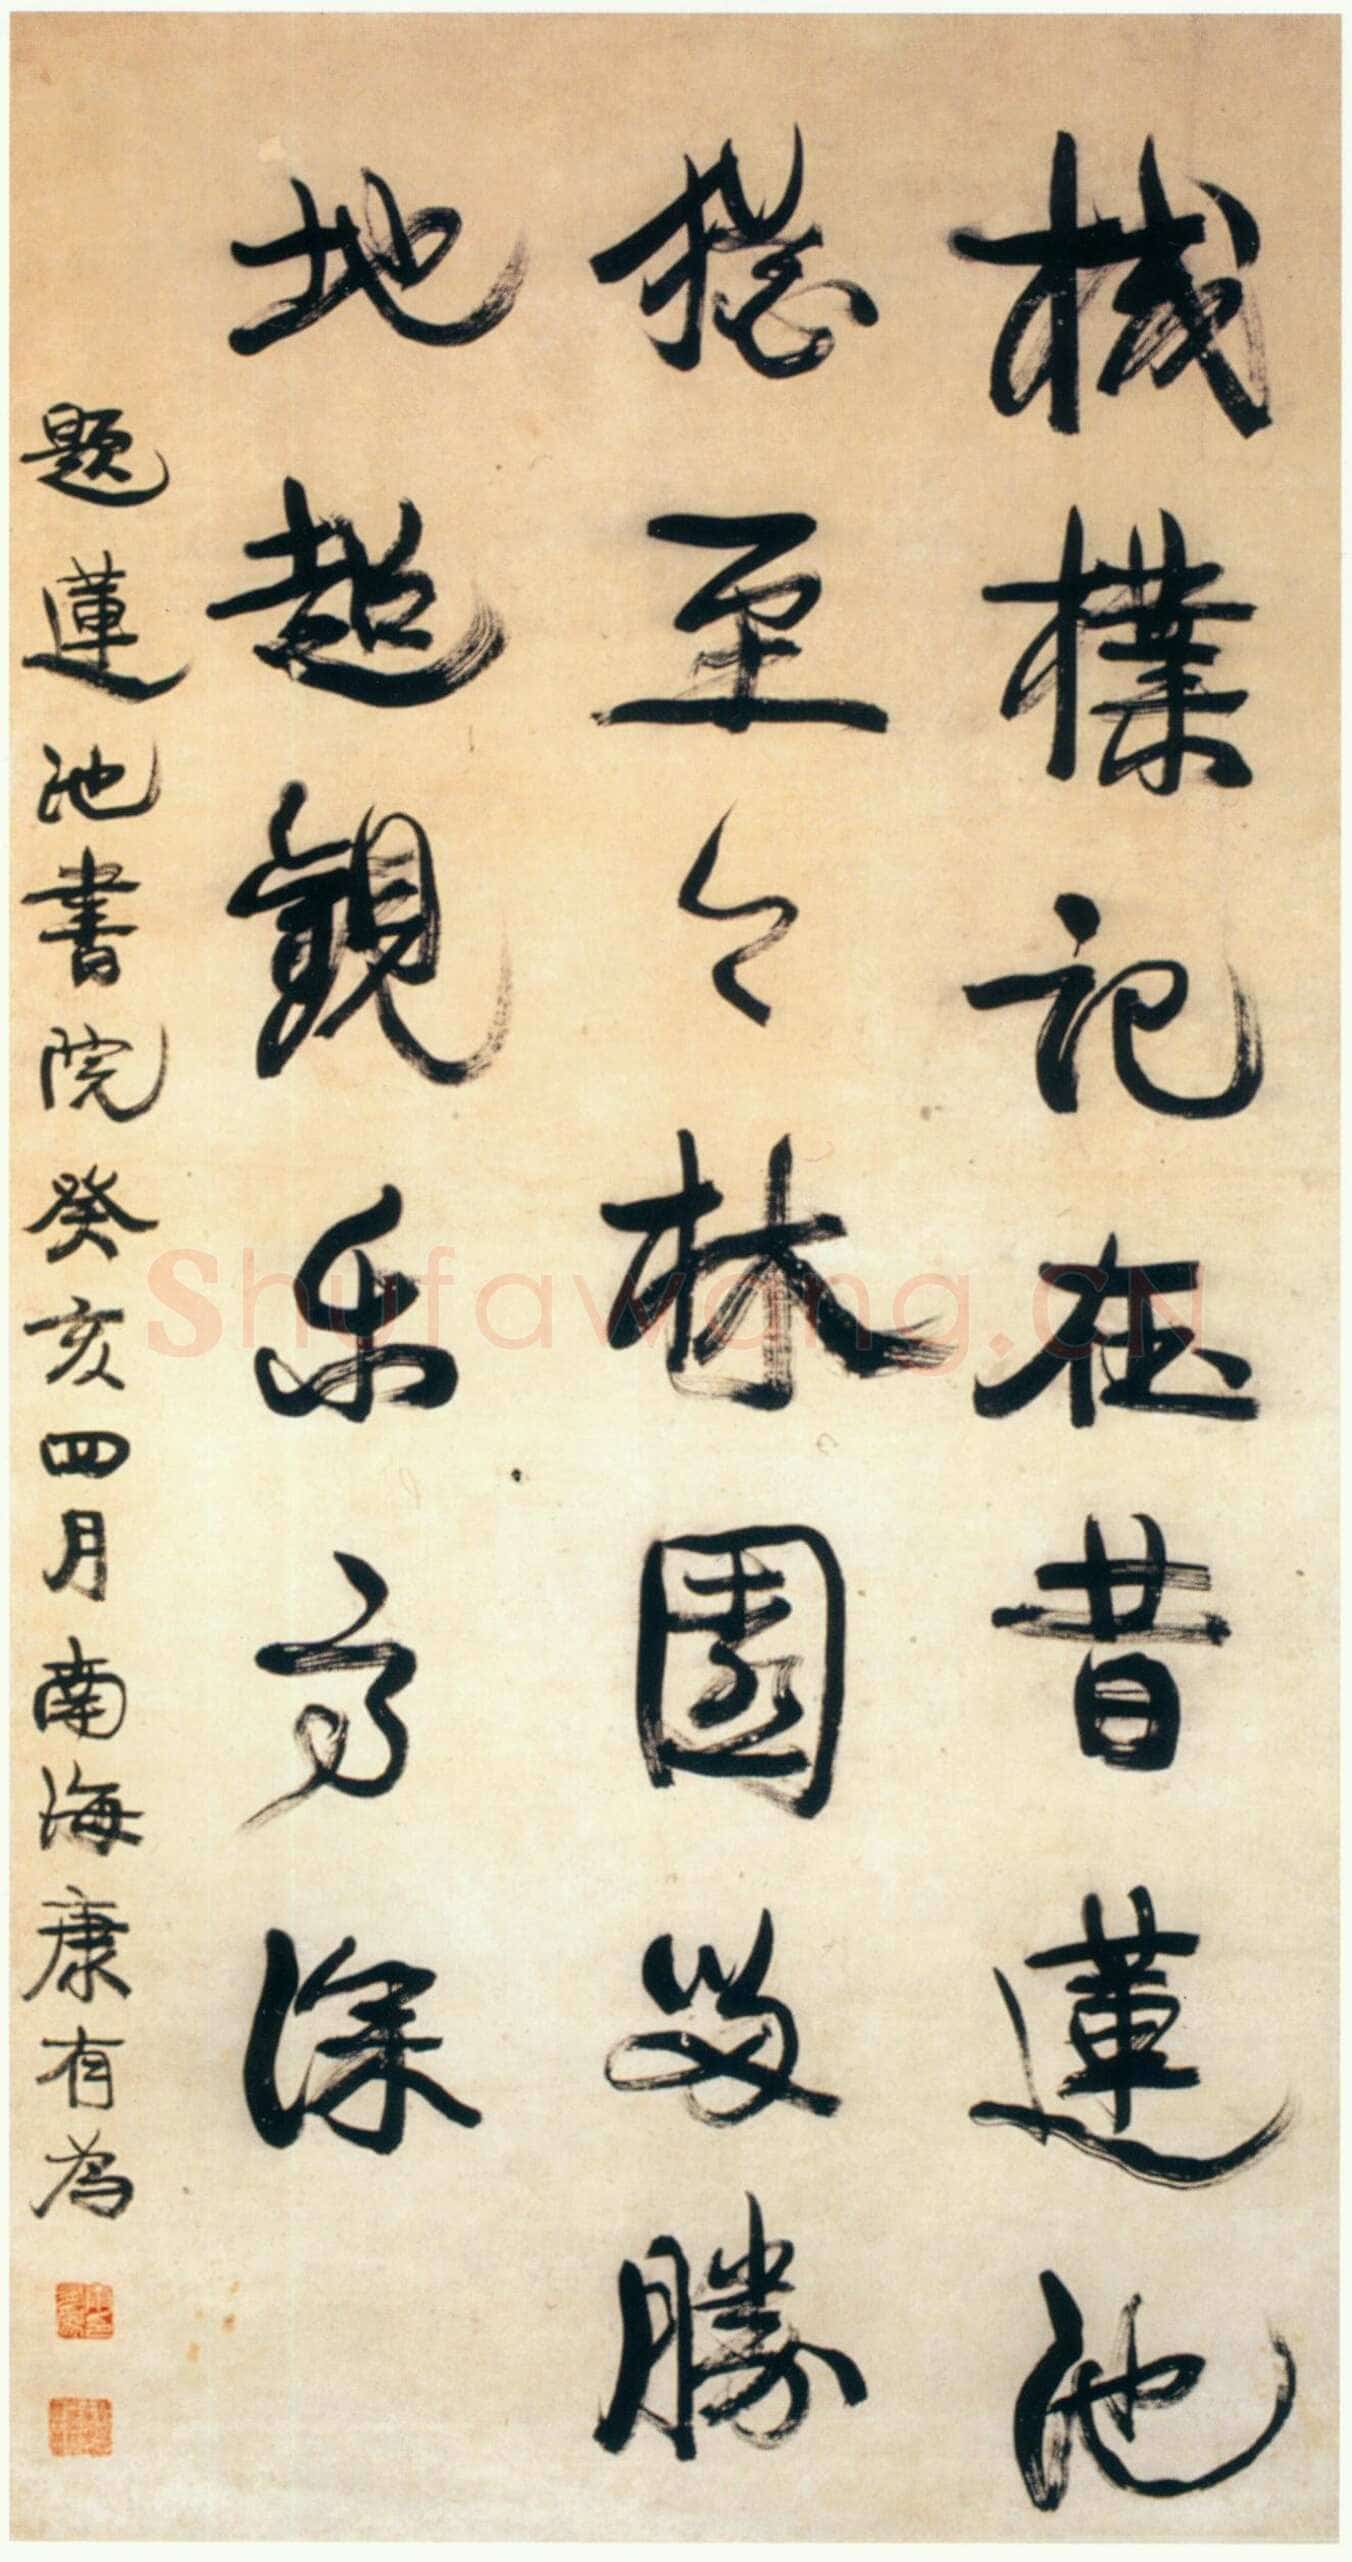 棫樸記在昔蓮池
猶至今林園最勝
地超觀乐高深
題蓮池書院癸亥四月南海康有為
Shufawang.CN